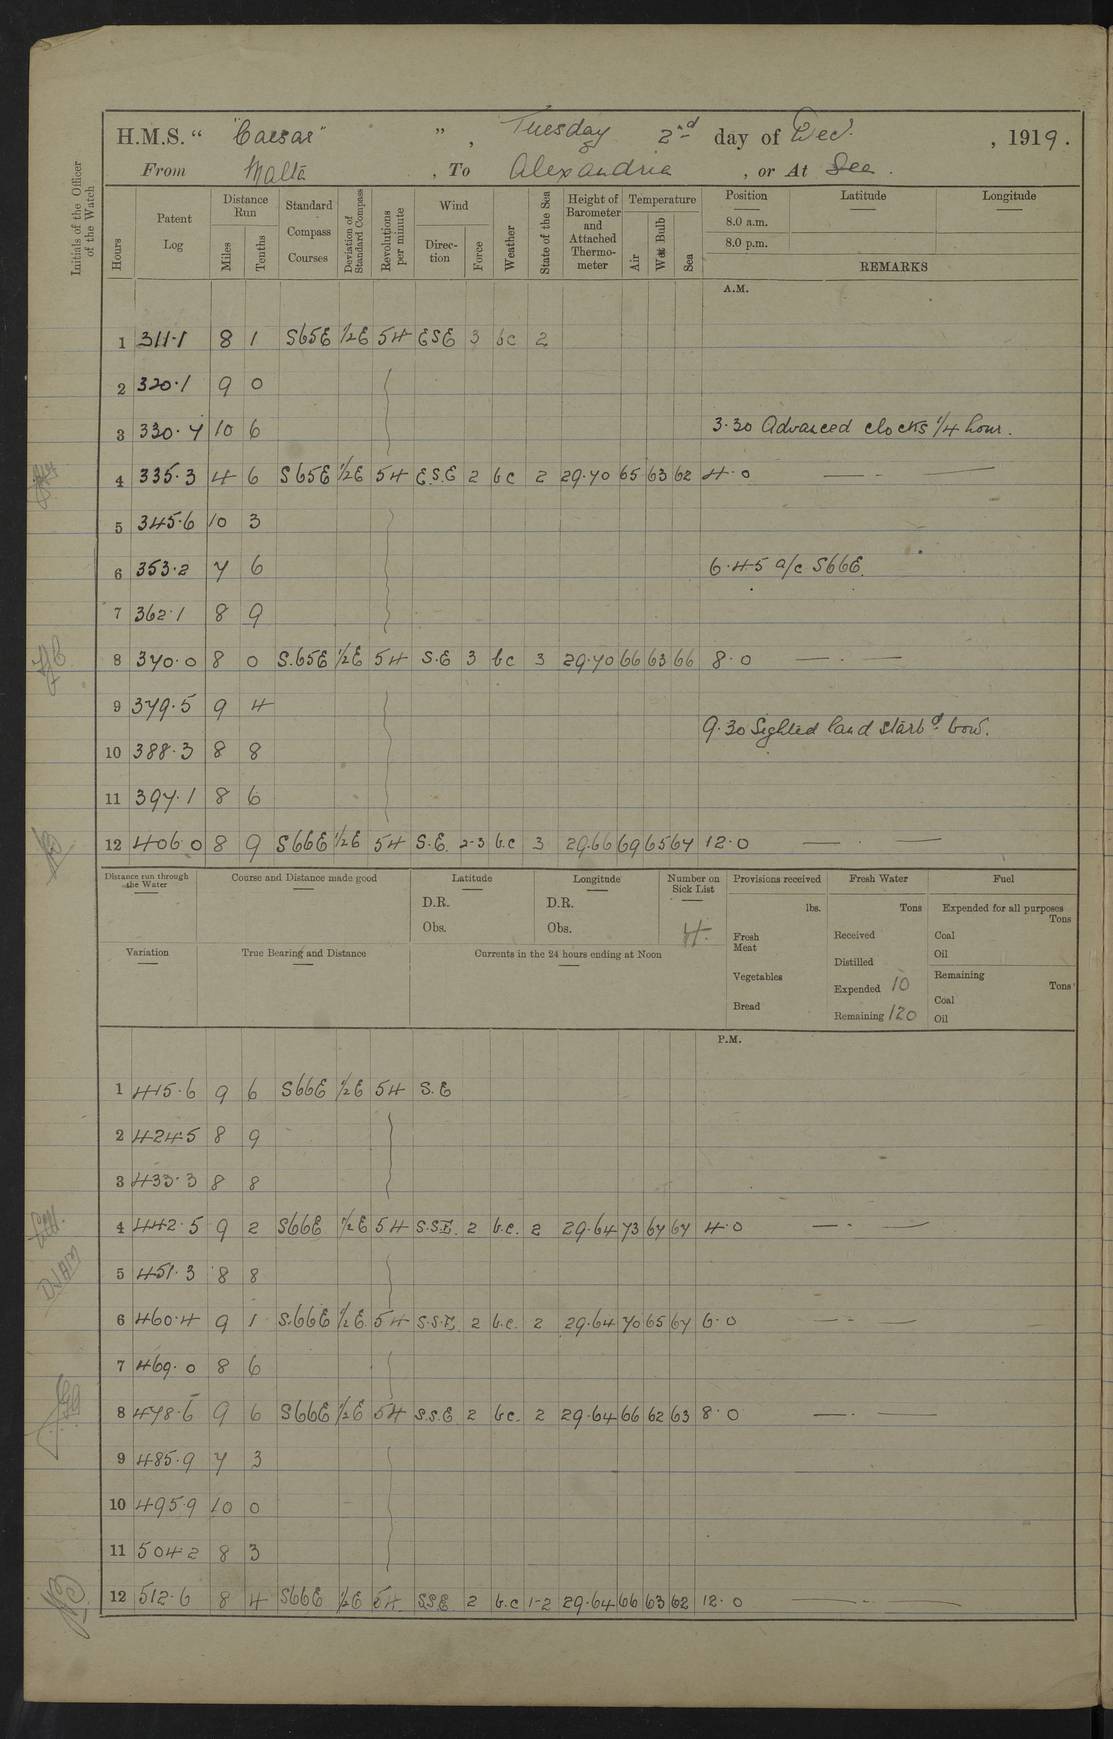 H.M.S. “ "Caesar" ” , Tuesday 2nd day of Dec. , 1919.
From Malta , To Alexandria , or At Sea.
Initials of the Officer of the Watch
Hours Patent Log Distance Run Miles Tenths Standard Compass Courses Deviation of Standard Compass Revolutions per minute Wind Direction Force Weather State of the Sea Height of Barometer and Attached Thermometer Temperature Air Wet Bulb Sea Position Latitude Longitude
8.0 a.m.
8.0 p.m.
REMARKS
A.M.
1 311·1 8 1 S65E 1/2E 54 ESE 3 bc 2
2 320·1 9 0
3 330·7 10 6 3·30 Advanced clocks 1/4 hour.
4 335·3 4 6 S65E 1/2E 54 E.S.E 2 bc 2 29·70 65 63 62 4·0 — · —
5 345·6 10 3
6 353·2 7 6 6·45 a/c S66E.
7 362·1 8 9
8 370·0 8 0 S.65E 1/2E 54 S.E 3 bc 3 29·70 66 63 66 8·0 — · —
9 379·5 9 4
9·30 Sighted land starbd bow.
10 388·3 8 8
11 397·1 8 6
12 406·0 8 9 S66E 1/2E 54 S.E. 2-3 b.c 3 29·66 69 65 67 12·0 — · —
Distance run through the Water Course and Distance made good Latitude Longitude Number on Sick List Provisions received Fresh Water Fuel
D.R. D.R. lbs. Tons Expended for all purposes Tons
Obs. Obs. 4. Fresh Meat Received Coal
Variation True Bearing and Distance Currents in the 24 hours ending at Noon Distilled Oil
Vegetables Expended 10 Remaining Tons
Bread Remaining 120 Coal
Oil
P.M.
1 415·6 9 6 S66E 1/2E 54 S.E
2 424·5 8 9
3 433·3 8 8
4 442·5 9 2 S66E 1/2E 54 S.S.E. 2 b.c. 2 29·64 73 67 67 4·0 — · —
5 451·3 8 8
DJAM
6 460·4 9 1 S.66E 1/2E. 54 S.S.E. 2 b.c. 2 29·64 70 65 67 6·0 — · —
7 469·0 8 6
8 478·6 9 6 S66E 1/2E 54 S.S.E 2 bc. 2 29·64 66 62 63 8·0 — · —
9 485·9 7 3
10 495·9 10 0
11 504·2 8 3
12 512·6 8 4 S66E 1/2E 54. S.S.E. 2 b.c 1-2 29·64 66 63 62 12·0 — · —